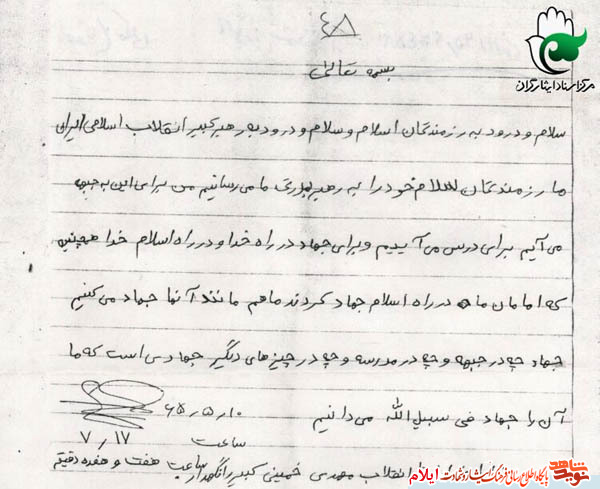 ۴۸
مرکز اسناد ایثارگران
بسمه تعالی
سلام و درود به رزمندگان اسلام و سلام و درود به رهبر کبیر انقلاب اسلامی ایران
ما رزمندگان سلام خود را به رهبر ما می رسانیم من برای این به جبهه
می آیم برای درس می آییم و برای جهاد در راه خدا و در راه اسلام خدا همچنین
که امامان ما در راه اسلام جهاد کردند ما هم مانند آنها جهاد می کنیم
جهاد چه در جبهه و چه در مدرسه و چه در چیزهای دیگر جهادی است که ما
آن را جهاد فی سبیل الله می دانیم ۶۵٫۵٫۱۰
ساعت ۷٫۱۷
انقلاب مهدی خمینی کبیر را نگهدار ساعت هفت و هفده دقیقه
نوید شاهد پایگاه اطلاع رسانی فرهنگ ایثار و شهادت ایلام